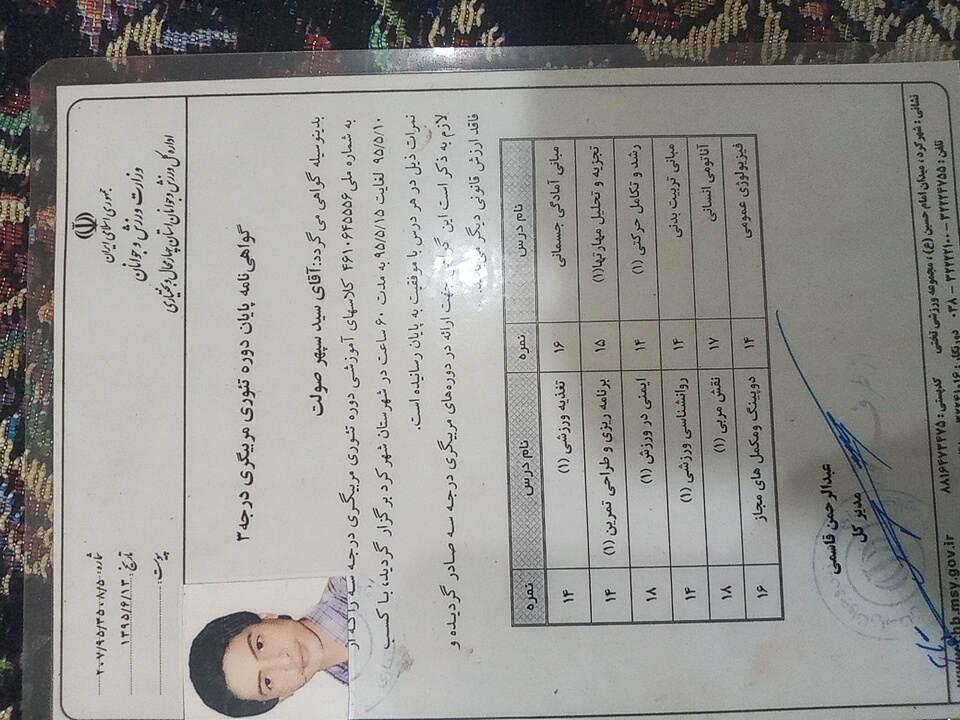 جمهوری اسلامی ایران
وزارت ورزش و جوانان
اداره کل ورزش و جوانان استان چهارمحال و بختیاری
شماره: ۲۰۷/۹۵/۳۵۰۸/۵۰
تاریخ: ۱۳۹۵/۶/۱۳
پیوست:
گواهی نامه پایان دوره تئوری مربیگری درجه ۳
بدینوسیله گواهی می گردد: آقای سید سپهر صولت
به شماره ملی ۴۶۱۰۶۴۵۵۵۶ کلاسهای آموزشی دوره تئوری مربیگری درجه سه را که از
۹۵/۵/۱۰ لغایت ۹۵/۵/۱۵ به مدت ۶۰ ساعت در شهرستان شهرکرد برگزار گردید، با کسب
نمرات ذیل در هر درس با موفقیت به پایان رسانیده است.
لازم به ذکر است این جهت ارائه در دوره‌های مربیگری درجه سه صادر گردیده و
فاقد ارزش قانونی دیگر
نام درس نمره نام درس نمره
مبانی آمادگی جسمانی ۱۶ تغذیه ورزشی (۱) ۱۴
تجزیه و تحلیل مهارتها(۱) ۱۵ برنامه ریزی و طراحی تمرین (۱) ۱۴
رشد و تکامل حرکتی (۱) ۱۴ ایمنی در ورزش (۱) ۱۸
مبانی تربیت بدنی ۱۴ روانشناسی ورزشی (۱) ۱۴
آناتومی انسانی ۱۷ نقش مربی (۱) ۱۸
فیزیولوژی عمومی ۱۴ دوپینگ ومکمل های مجاز ۱۶
عبدالرحمن قاسمی
مدیر کل
نشانی: شهرکرد، میدان امام حسین (ع)، مجموعه ورزشی تختی کدپستی: ۸۸۱۶۴۷۳۴۷۵
تلفن: ۳۲۲۲۴۷۵۵ - ۳۲۲۲۲۱۰۰ - ۰۳۸
hb.msy.gov.ir